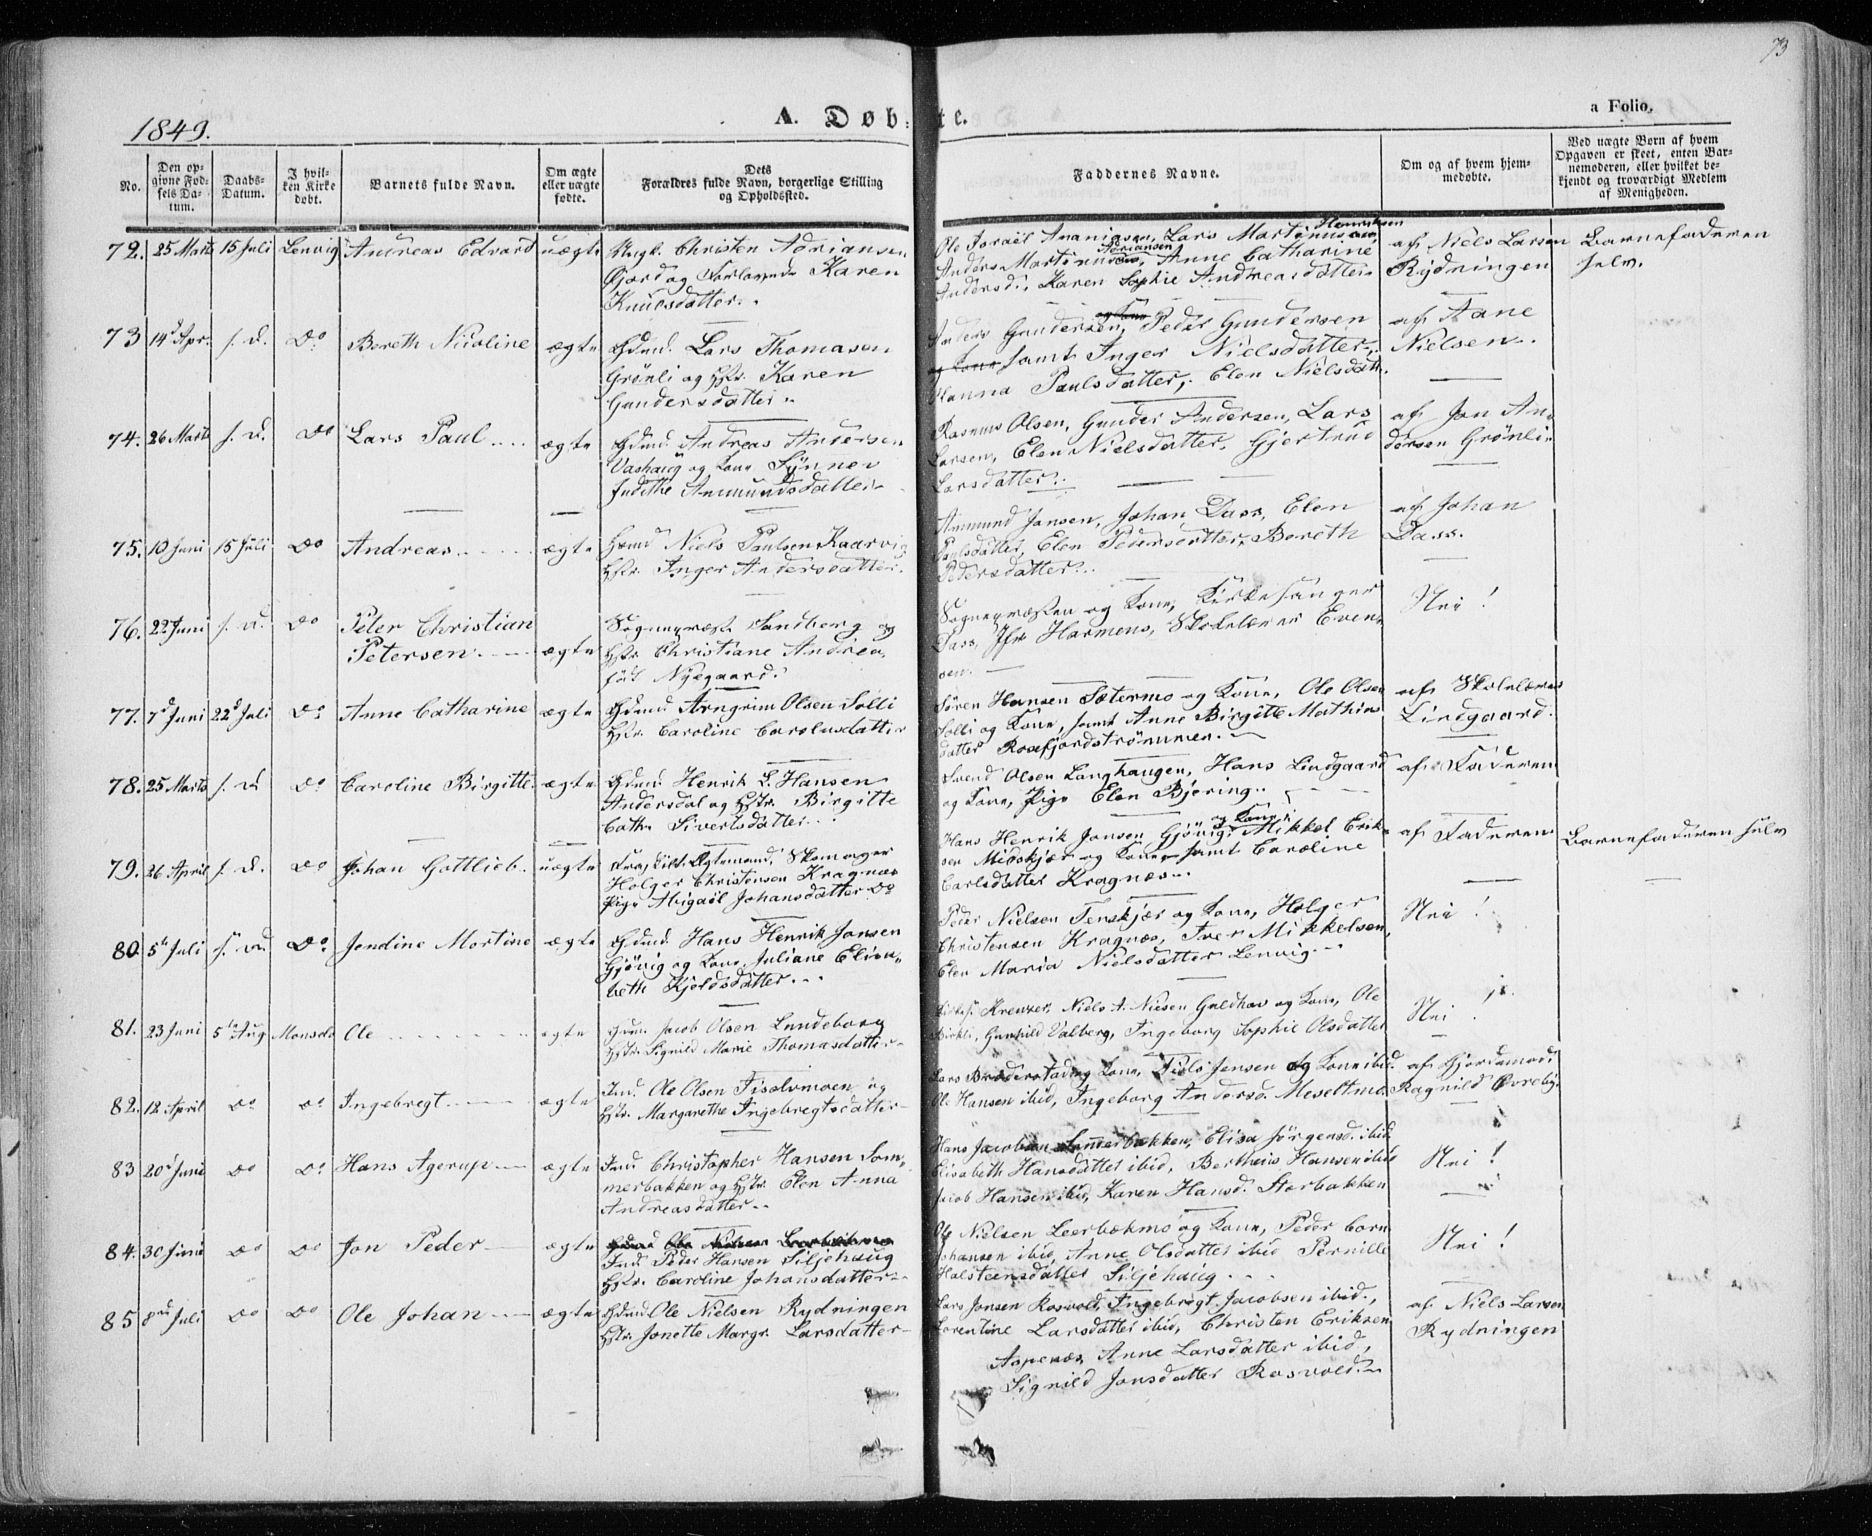 73
1849.
A. Døb-te.
a Folio.
No.
Den op-
givne Fød-
sels Da-
tum.
Daabs-
Datum.
I hvil-
ken Kirke
døbt.
Barnets fulde Navn.
Om ægte
eller uægte
fødte.
Dets
Forældres fulde Navn, borgerlige Stilling
og Opholdssted.
Faddernes Navne.
Om og af hvem hjem-
medøbte.
Ved uægte Børn af hvem
Opgaven er skeet, enten Bar-
nemoderen, eller hvilket be-
kjendt og troværdigt Medlem
af Menigheden.
72. 25 Marts 15 Juli Lenvig Andreas Edvard uægte Ungk. Christen Adriansen
Gjord og Karen
Knudsdatter.
Ole Israel Ananiasen, Lars Martinussen Henriksen
Anders Martinussen Adriansen, Anne Catharine
Andersd., Karen Sophie Andreasdatter
af Niels Larsen
Rydningen
Barnefaderen
selv.
73 14d Apr. s. d. Do Bereth Nicoline ægte Gdmd. Lars Thomasen
Grönli og Hstr. Karen
Gundersdatter.
Anders Gundersen, Peder Gundersen
og Kone samt Inger Nielsdatter,
Hanna Paulsdatter, Elen Nielsdatt.
af Aane
Nielsen.
74. 26 Marts s. d. Do Lars Paul ægte Gdmd. Andreas Andersen
Vashaug og Kone Synnev
Judithe Anmundsdatter
Rasmus Olsen, Gunder Andersen, Lars
Larsen, Elen Nielsdatter, Gjertrud
Larsdatter.
af Jon An-
dersen Grönli
75. 10 Juni 15 Juli Do Andreas ægte Hmd Niels Paulsen Kaarvig
Hstr. Inger Andersdatter.
Ammund Jonsen, Johan Dass, Elen
Paulsdatter, Elen Pedersdatter, Bereth
Pedersdatter.
af Johan
Dass.
76. 22 Juni s. d. Do Peter Christian
Petersen ægte Sognepræst Sandberg og
Hstr. Christiane Andrea
född Nyegaard.
Sognepræsten og Kone, Kirkesanger
Dass, Jfr Harmens, Skolelærer Even-
sen.
Nei!
77. 7d Juni 22d Juli Do Anne Catharine ægte Gdmd Arngrim Olsen Solli
Hstr. Caroline Carolusdatter
Sören Hansen Sætermo og Kone, Ole Olsen
Solli og Kone, samt Anne Birgitte Mathias
datter Rossfjordströmmen.
af Skolelærer
Lindgaard.
78. 25 Marts s. d. Do Caroline Birgitte ægte Gdmd Henrik L. Hansen
Andersdal og Hstr. Birgitte
Cath. Sivertsdatter.
Svend Olsen Langhaugen, Hans Lindgaard
og Kone, Pige Elen Bjering.
af Faderen
79. 26 April s. d. Do Johan Gottlieb uægte Fraskilt Ægtemand, Skomager
Holger Christensen Kragnæs
Pige Abigaël Johansdatter Do
Hans Henrik Jonsen Gjövig og Kone, Mikkel Erik-
sen Midskjær og Kone samt Caroline
Carlsdatter Kragnæs.
af Faderen
Barnefaderen selv
80. 5te Juli s. d. Do Jondine Martine ægte Gdmd. Hans Henrik Jonsen
Gjövig og Kone Juliane Elisa-
beth Kjeldsdatter.
Peder Nielsen Tenskjær og Kone, Holger
Christensen Kragnæs, Iver Mikkelsen,
Elen Maria Nielsdatter Lenvig.
Nei!
81. 23 Juni 5te Aug Maalselv Ole ægte Gdm. Jacob Olsen Lundeborg
Hstr. Signild Marie Thomasdatter
Kirkes. Kreutzer, Niels A. Nilsen Guldhav og Kone, Ole
Birkli, Gunhild Valberg, Ingeborg Sophie Olsdatter
Nei!
82. 12 April Do Do Ingebregt ægte Ind. Ole Olsen Fiselvmoen og
Hstr. Margarethe Ingebregtsdatter
Lars Bræderstad og Kone, Jensen og Kone ibid.
Ole Hansen ibid, Ingeborg Andersd. Meseltmo
af Gjordemod.
Ragnild Övreby.
83 20 Juni Do Do Hans Agerup ægte Ind. Christopher Hansen Som-
merbakken og Hstr. Elen Anna
Andreasdatter
Hans Jacobsen Sommerbakken, Elisa Jörgensd. ibid.
Elisabeth Hansdatter ibid, Bertheus Hansen ibid
Jacob Hansen ibid, Karen Hansd. Storbakken
Nei!
84. 30 Juni Do Do Jon Peder ægte Gdmd Ole Nielsen Leerbækmo
Ind. Peder Hansen Siljehaug
Hstr. Caroline Johansdatter
Ole Nielsen Leerbækmo og Kone, Peder Corn.
Johansen ibid, Anne Olsdatter ibid Pernille
Holsteensdatter Siljehaug
Nei!
85 8de Juli Do Do Ole Johan ægte Gdmd Ole Nielsen Rydningen
Hstr. Jonette Margr. Larsdatter
Lars Jonsen Rosvold, Ingebregt Jacobsen ibid.,
Lorentine Larsdatter ibid, Christen Eriksen
Aspenæs, Anne Larsdatter ibid,
Signild Jonsdatter Rosvold.
af Niels Larsen
Rydningen